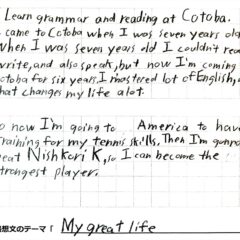 I Learn grammar and reading at Cotoba.
came to Cotoba when I was seven years old
When I was seven years old I couldn't rea
write, and also speak, but now I'm coming
otoba for six years, I mastered lot of English, a
hat changes my life alot.
o now I'm going to America to have
training for my tennis skills, Then I'm gunna
eat Nishkori K, so I can become the
trongest player.
想文のテーマ「 My great life